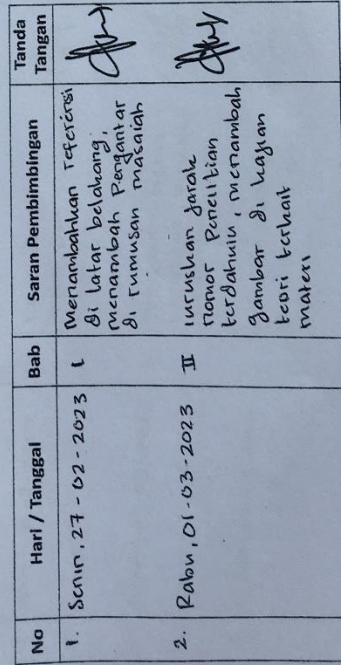 No Hari / Tanggal Bab Saran Pembimbingan Tanda Tangan
1. Senin, 27 - 02 - 2023 I Menambahkan referensi
di latar belakang,
menambah Pengantar
di rumusan masalah
2. Rabu, 01 - 03 - 2023 II luruskan jarak
nomor Penelitian
terdahulu, menambah
gambar di kajian
teori terkait
materi